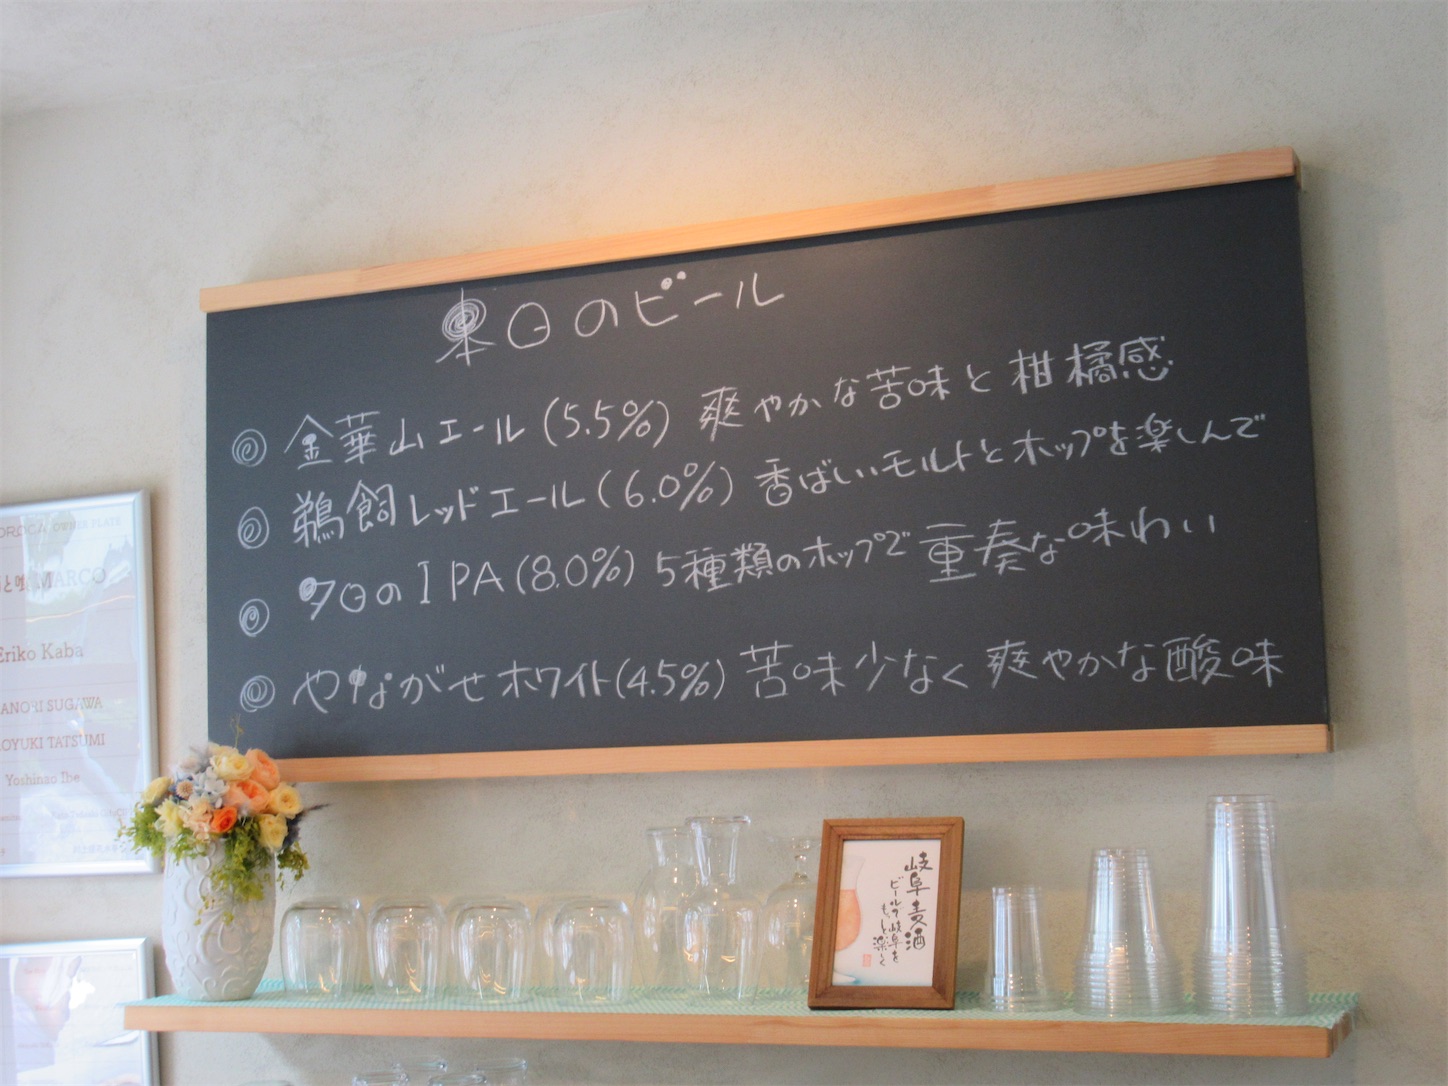 東日のビール
金華山エール(5.5%) 爽やかな苦味と柑橘感
鵜飼レッドエール(6.0%) 香ばしいモルトとホップを楽しんで
夕日のIPA(8.0%) 5種類のホップで重奏な味わい
やながせホワイト(4.5%) 苦味少なく爽やかな酸味
OWNER PLATE
MARCO
Eriko Kaba
ANORI SUGAWA
OYUKI TATSUMI
Yoshinao Ibe
岐阜麦酒
ビールで岐阜を
もっと楽しく